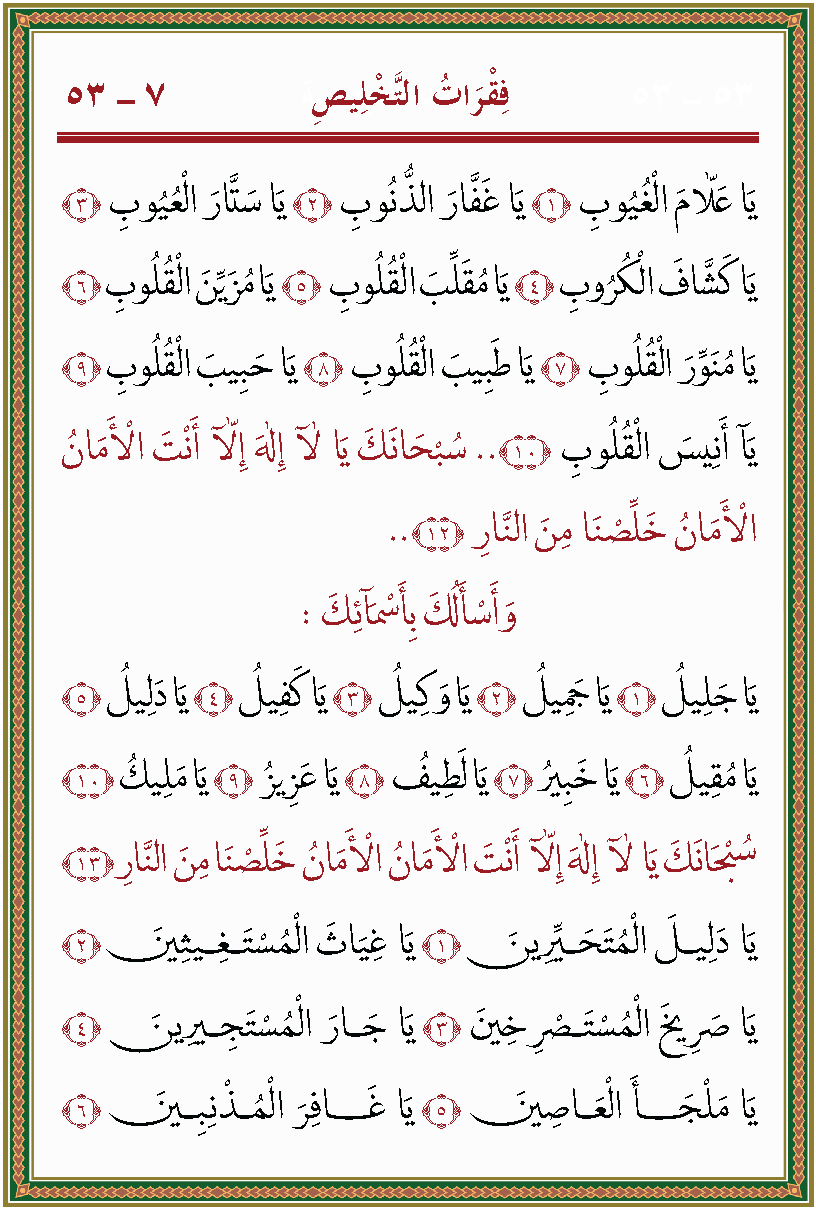 فِقْرَاتُ التَّخْلِيصِ ٧ ـ ٥٣
يَا عَلَّامَ الْغُيُوبِ ﴿١﴾ يَا غَفَّارَ الذُّنُوبِ ﴿٢﴾ يَا سَتَّارَ الْعُيُوبِ ﴿٣﴾
يَا كَشَّافَ الْكُرُوبِ ﴿٤﴾ يَا مُقَلِّبَ الْقُلُوبِ ﴿٥﴾ يَا مُزَيِّنَ الْقُلُوبِ ﴿٦﴾
يَا مُنَوِّرَ الْقُلُوبِ ﴿٧﴾ يَا طَبِيبَ الْقُلُوبِ ﴿٨﴾ يَا حَبِيبَ الْقُلُوبِ ﴿٩﴾
يَآ أَنِيسَ الْقُلُوبِ ﴿١٠﴾.. سُبْحَانَكَ يَا لَآ إِلٰهَ إِلَّآ أَنْتَ الْأَمَانُ
الْأَمَانُ خَلِّصْنَا مِنَ النَّارِ ﴿١٢﴾..
وَأَسْأَلُكَ بِأَسْمَآئِكَ :
يَا جَلِيلُ ﴿١﴾ يَا جَمِيلُ ﴿٢﴾ يَا وَكِيلُ ﴿٣﴾ يَا كَفِيلُ ﴿٤﴾ يَا دَلِيلُ ﴿٥﴾
يَا مُقِيلُ ﴿٦﴾ يَا خَبِيرُ ﴿٧﴾ يَا لَطِيفُ ﴿٨﴾ يَا عَزِيزُ ﴿٩﴾ يَا مَلِيكُ ﴿١٠﴾
سُبْحَانَكَ يَا لَآ إِلٰهَ إِلَّآ أَنْتَ الْأَمَانُ الْأَمَانُ خَلِّصْنَا مِنَ النَّارِ ﴿١٣﴾
يَا دَلِيلَ الْمُتَحَيِّرِينَ ﴿١﴾ يَا غِيَاثَ الْمُسْتَغِيثِينَ ﴿٢﴾
يَا صَرِيخَ الْمُسْتَصْرِخِينَ ﴿٣﴾ يَا جَارَ الْمُسْتَجِيرِينَ ﴿٤﴾
يَا مَلْجَأَ الْعَاصِينَ ﴿٥﴾ يَا غَافِرَ الْمُذْنِبِينَ ﴿٦﴾